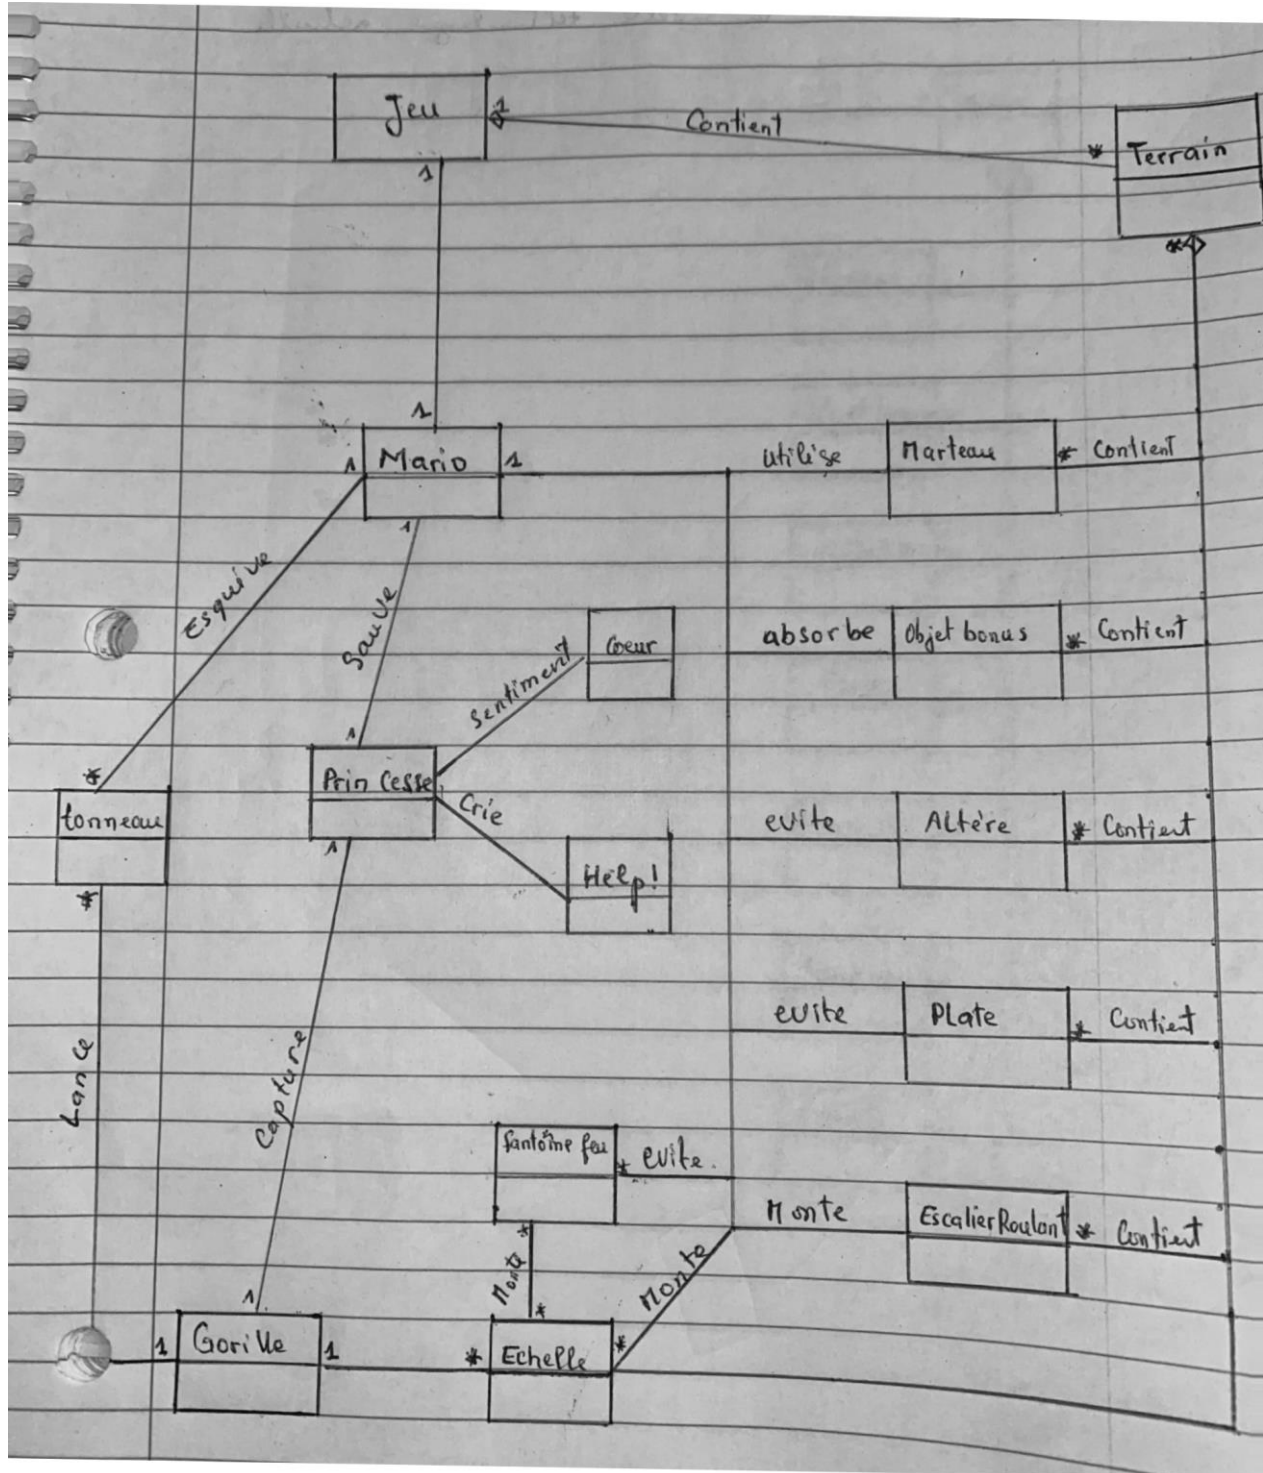 Jeu
1
Contient
* Terrain
1
*
1
1 Mario 1
utilise
Marteau
* Contient
1
Esquive
Sauve
Sentiment
Coeur
absorbe
Objet bonus
* Contient
1
Princesse
Crie
*
tonneau
evite
Altère
* Contient
1
Help!
*
Lance
Capture
evite
Plate
* Contient
fantôme feu
* evite.
Monte
Escalier Roulant
* Contient
*
Monte
Monte
1
*
1 Gorille 1
* Echelle *